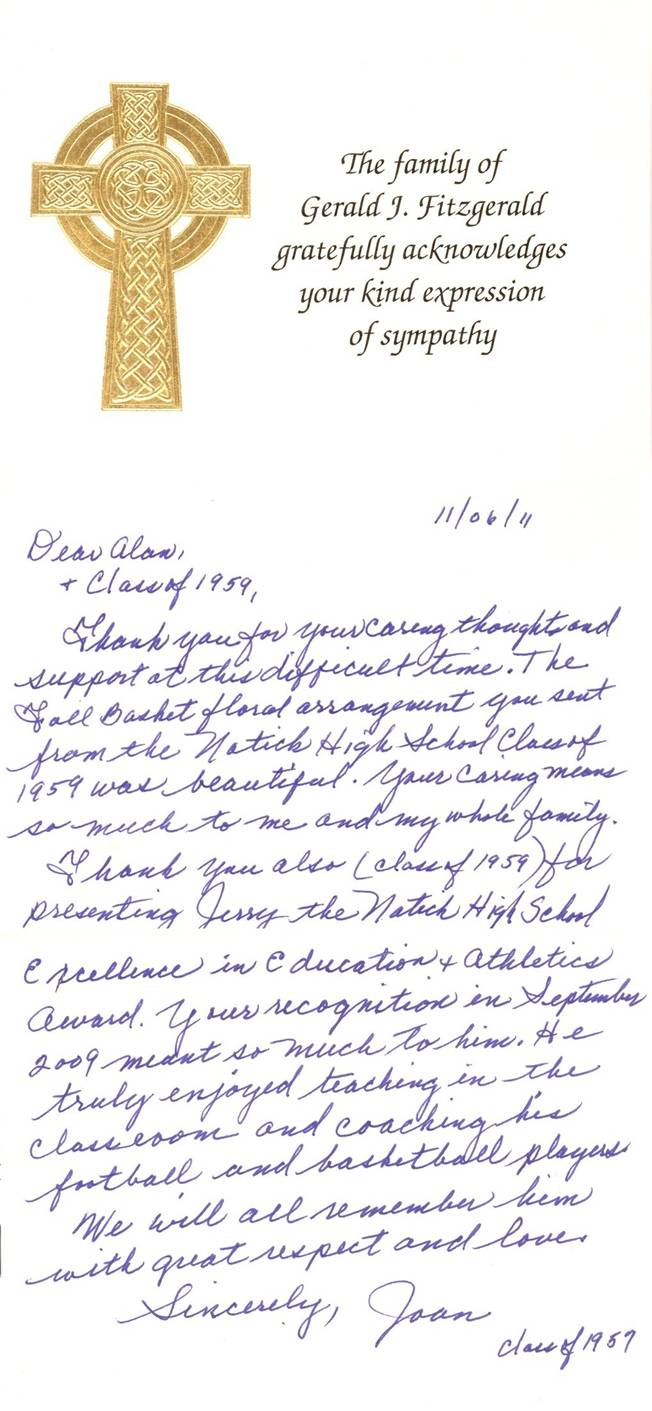 The family of
Gerald J. Fitzgerald
gratefully acknowledges
your kind expression
of sympathy
11/06/11
Dear Alan,
+ Class of 1959,
Thank you for your caring thoughts and
support at this difficult time. The
Fall Basket floral arrangement you sent
from the Natick High School Class of
1959 was beautiful. Your caring means
so much to me and my whole family.
Thank you also (class of 1959) for
presenting Jerry the Natick High School
Excellence in Education + Athletics
Award. Your recognition in September
2009 meant so much to him. He
truly enjoyed teaching in the
classroom and coaching his
football and basketball players.
We will all remember him
with great respect and love.
Sincerely, Joan
class of 1957